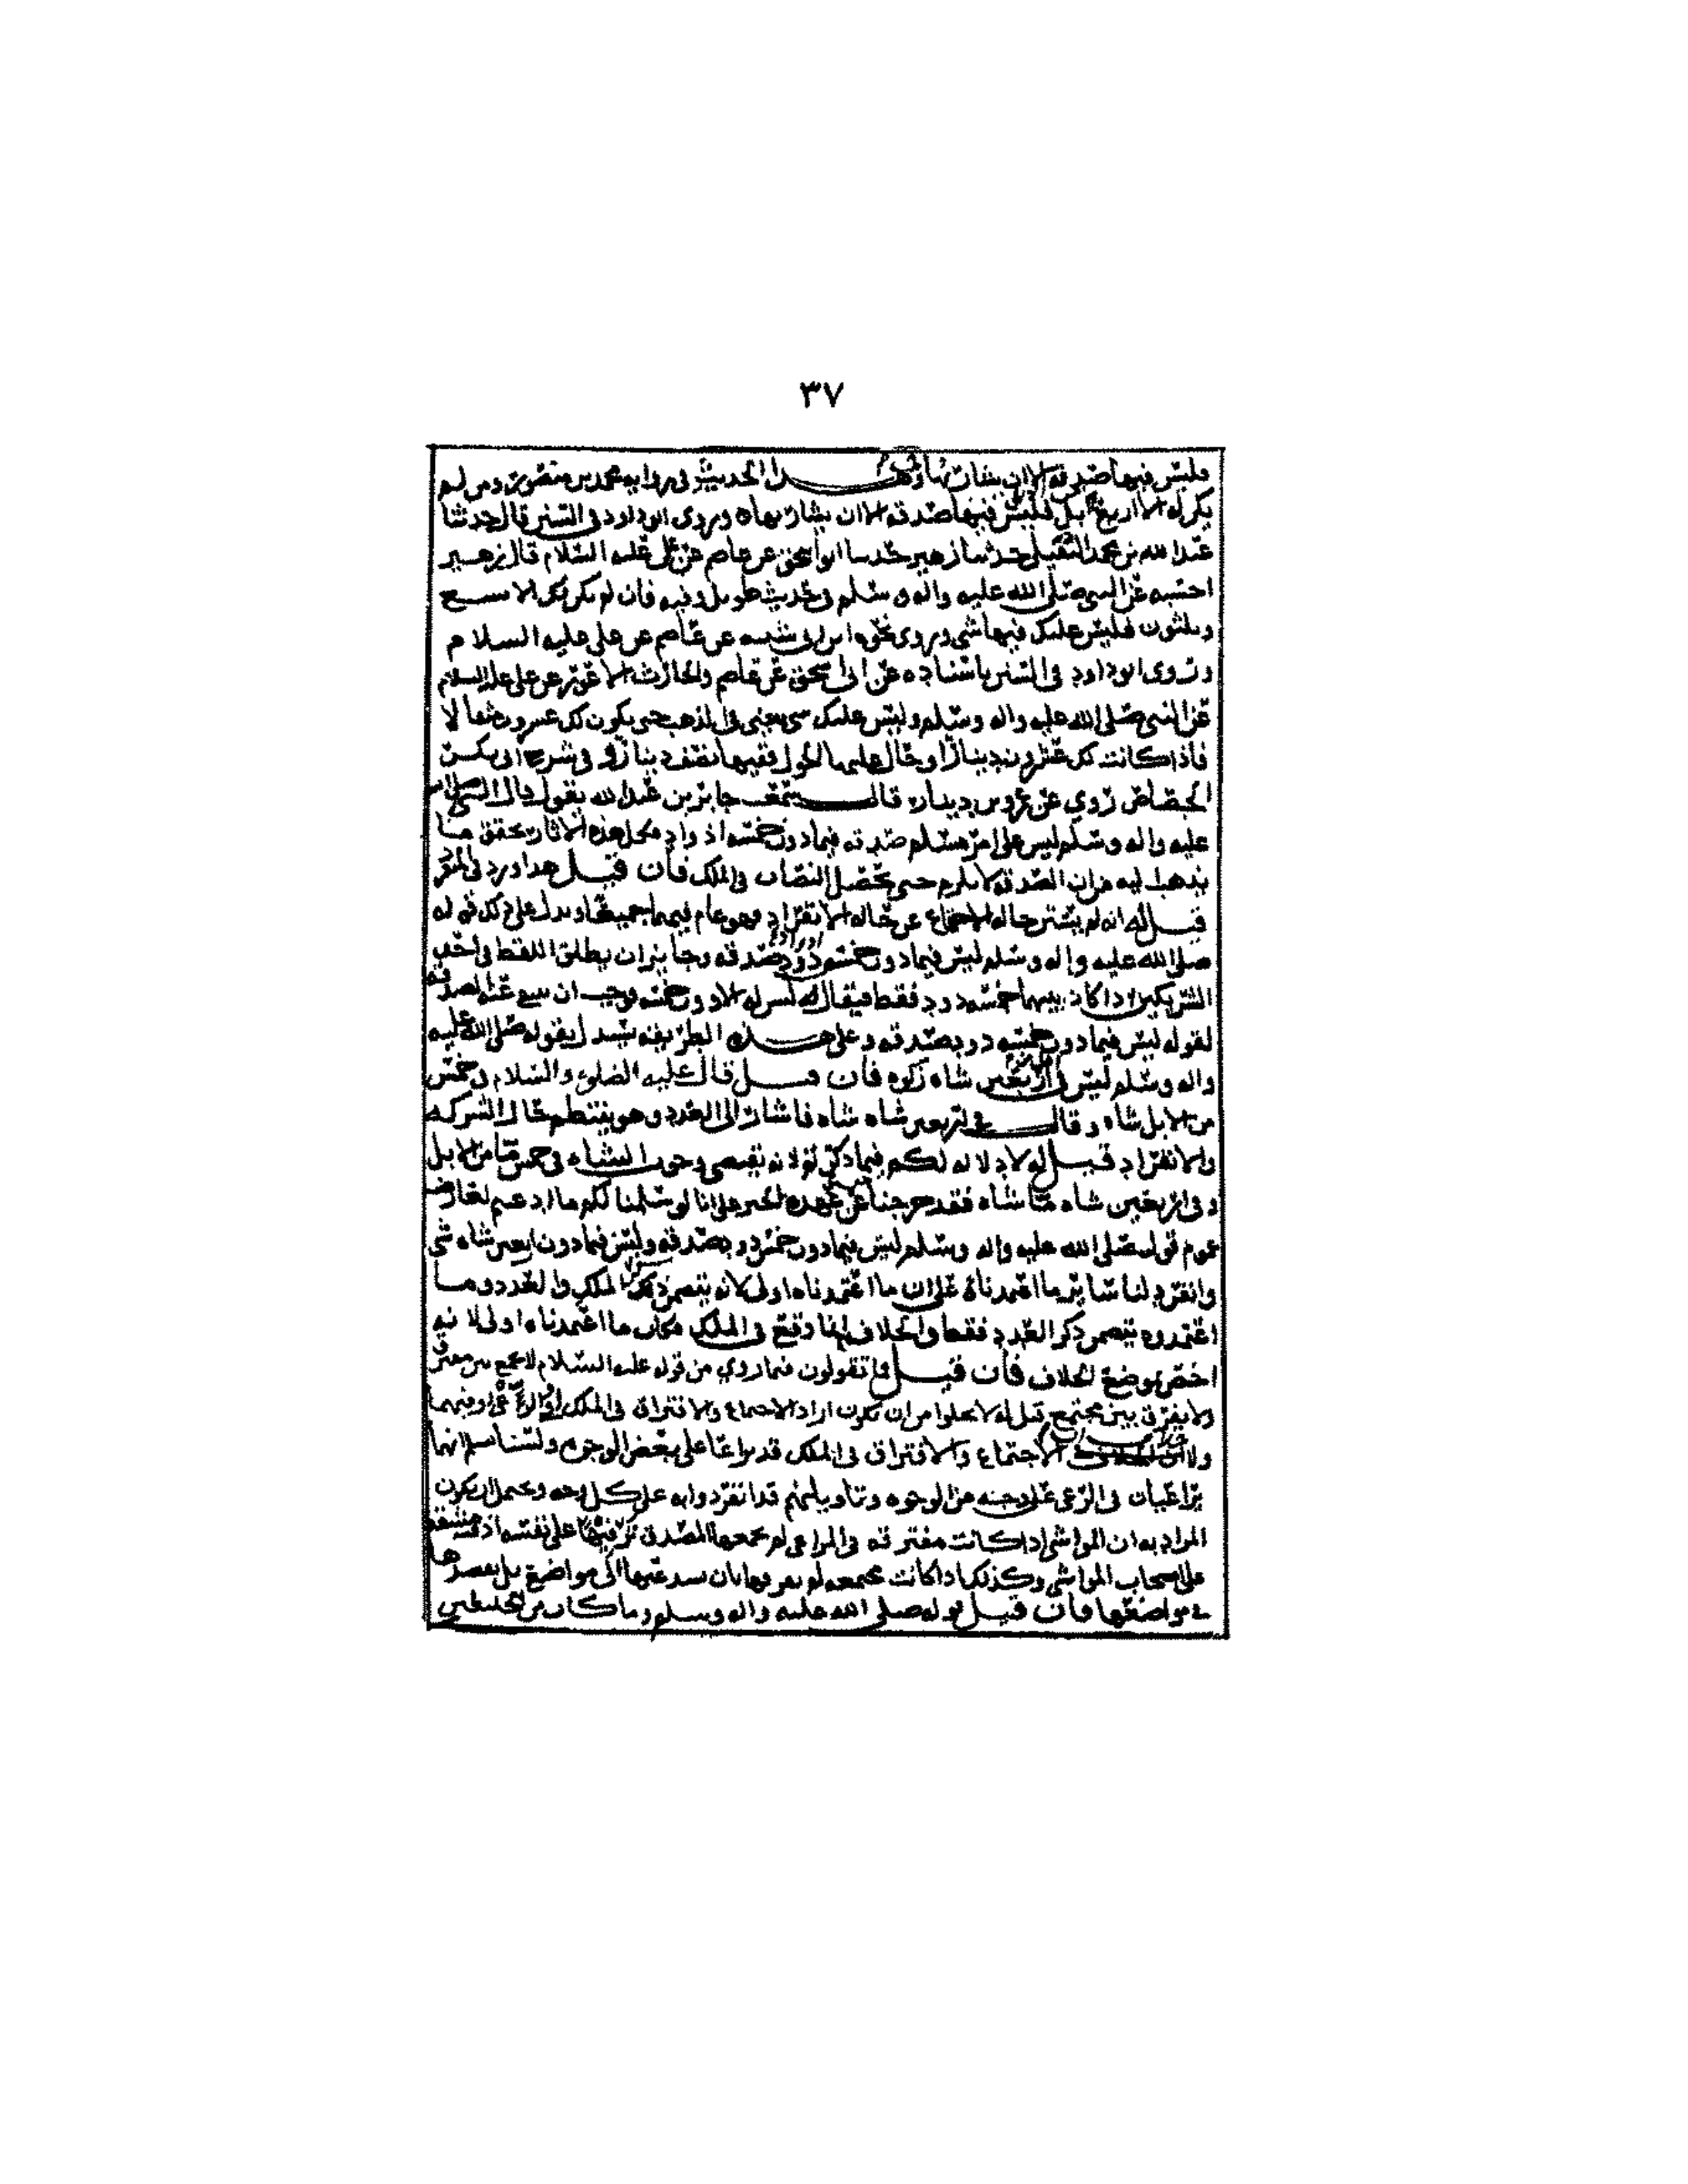 ٣٧
فليس فيها صدقة الا ان يشاء ربها وفي هذا الحديث في رواية محمد بن منصور ومن لم
يكن له الا اربع من الابل فليس فيها صدقة الا ان يشاء ربها وروى ابو داود في السنن قال حدثنا
عبد الله بن محمد النفيلي حدثنا زهير حدثنا ابو اسحق عن عاصم عن علي عليه السلام قال زهير
احسبه عن النبي صلى الله عليه واله وسلم في حديث طويل وفيه فان لم يكن لك الا تسع
وثلثون فليس عليك فيها شي وروى نحوه ابن ابي شيبه عن عاصم عن علي عليه السلام
وروى ابو داود في السنن باسناده عن ابي اسحق عن عاصم والحارث الاعور عن علي عليه السلام
عن النبي صلى الله عليه واله وسلم وليس عليك شي يعني في الذهب حتى يكون لك عشرون مثقالا
فاذا كانت لك عشرون دينارا وحال عليها الحول ففيها نصف دينار وفي شرح ابي بكر
الجصاص روي عن عمرو بن دينار قال سمعت جابر بن عبد الله يقول قال النبي صلى الله
عليه واله وسلم ليس على امرء مسلم صدقة فيما دون خمسة اذواد فكل هذه الاثار تحقق ما
يذهب اليه من ان الصدقة لا تلزم حتى يحصل النصاب في الملك فان قيل هذا ورد في المنفرد
قيل له انه لم يشترط حاله الاجتماع عن حاله الانفراد وهو عام فيهما جميعا ويدل على ذلك قوله
صلى الله عليه واله وسلم ليس فيما دون خمسة ذود صدقة وجايز ان يطلق اللفظ في احد
الشريكين اذا كان بينهما خمسة ذود فقط فيقال انه ليس له الا دون خمسة فوجب ان تنتفي عنه الصدقة
لقوله ليس فيما دون خمسة ذود صدقة وعلى هذه الطريقة نستدل بقوله صلى الله عليه
واله وسلم ليس في اربعين شاه زكوة فان قيل قال عليه الصلوة والسلام في خمس
من الابل شاه وقال في اربعين شاه شاه فاشار الى العدد وهو ينتظم حال الشركه
والانفراد قيل له لا دلاله لكم فيما ذكرتموه لانه يقتضي وجوب الشاه في خمس ما من الابل
وفي اربعين شاه ما شاه فقد خرجنا عن عهدة الخبر على انا لو سلمنا لكم ما ادعيتم لعارضه
عموم قوله صلى الله عليه واله وسلم ليس فيما دون خمس ذود صدقة وليس فيما دون اربعين شاه شي
وانفرد لنا سائر ما اعتمدناه على ان ما اعتمدناه اولى لانه يتضمن ذكر الملك والعدد وما
اعتمدوه يتضمن ذكر العدد فقط والخلاف انما وقع في الملك فكان ما اعتمدناه اولى لانه
اخص بموضع الخلاف فان قيل فما تقولون فيما روي من قوله عليه السلام لا يجمع بين مفترق
ولا يفرق بين مجتمع قيل له لا يخلوا من ان يكون اراد الاجتماع والافتراق في الملك او الرعي او فيهما
ولا الاجتماع والافتراق في الملك قد يراعا على بعض الوجوه ولسنا نسلم انهما
يراعيان في الرعي على وجه من الوجوه وتاويلهم قد انفردوا به على كل وجه ويحتمل ان يكون
المراد به ان المواشي اذا كانت مفترقة في المراعي لم يجمعها المصدق ترفيها على نفسه اذ فيه مشقة
على اصحاب المواشي وكذلك اذا كانت مجتمعه لم يفرقها بان يستدعيها الى مواضع بل يقصدها
في مواضعها فان قيل قوله صلى الله عليه واله وسلم وما كان من الخليطين